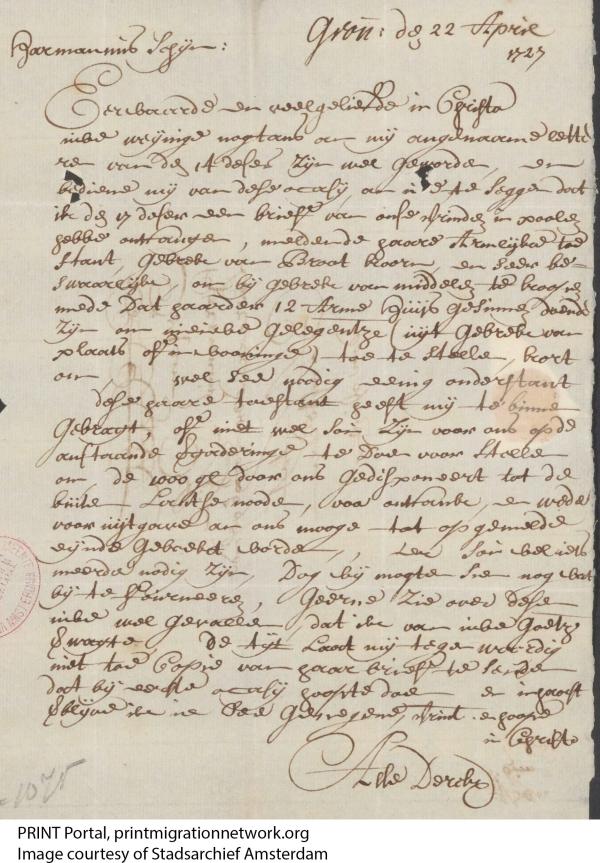 Harmannus Schijn: Gron: den 22 April
1727
Eerwaarde en veelgeliefde in Christo
uwe weijnige nogtans an mij angenaame lette
re van den 14 deses zijn wel geworden, en
bediene mij van dese ocasij, an u te seggen dat
ik den 17 deser een brief van onse vrinden in poolen
hebbe ontfangen, meldende haare armlijke toe
stant, gebrek van broot koorn, en seer be
swaarlijke, om bij gebrek van middelen te koopen
mede dat haarder 12 arme Huijs gesinnen
zijn om gelegentheijt (uijt gebrek van
plaats of inwooninge) toe te stellen, kort
om, wel see noodig eenig onderstant
dese haare toestant heeft mij te binnen
gebragt, of niet wel soude zijn voor ons op de
anstaande vergaderinge te doen voor stellen
om, de 1000 gl door ons gedisponeert tot de
buite Lantse noode, van, en wede
voor uijtgave an ons mooge tot opgemelde
eijnde gebruikt worden, soude wel iets
meerder nodig zijn, Dog wij mogte sien nog wat
bij te fourneeren, geerne zie over dese
uwe wel gevallen, dat ik van uwe goetheijt
verwagte, De tijt laat mij tegenwoordig
niet toe Copie van haar brief te senden
dat bij eerste ocasij hoopte doen en inhaest
verblijve ik u Ee Genegene vrint en
in Christo
Alle Derks
1075
PRINT Portal, printmigrationnetwork.org
Image courtesy of Stadsarchief Amsterdam